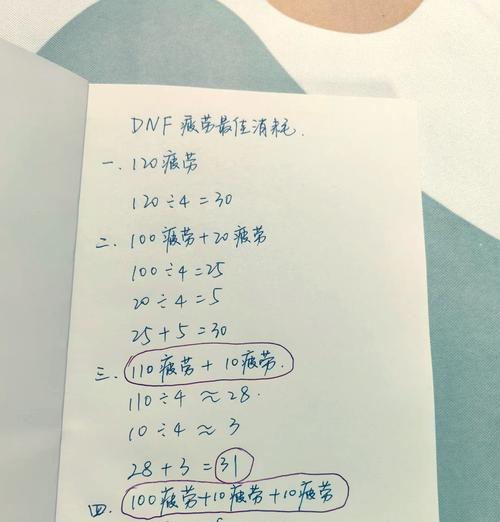 DNF 疲劳最佳消耗.
一. 120疲劳
120÷4=30
二. 100疲劳+20疲劳
100÷4=25
20÷4=5
25+5=30
三. 110疲劳+10疲劳.
110÷4≈28.
10÷4≈3
28+3=31
四. 100疲劳+10疲劳+10疲劳